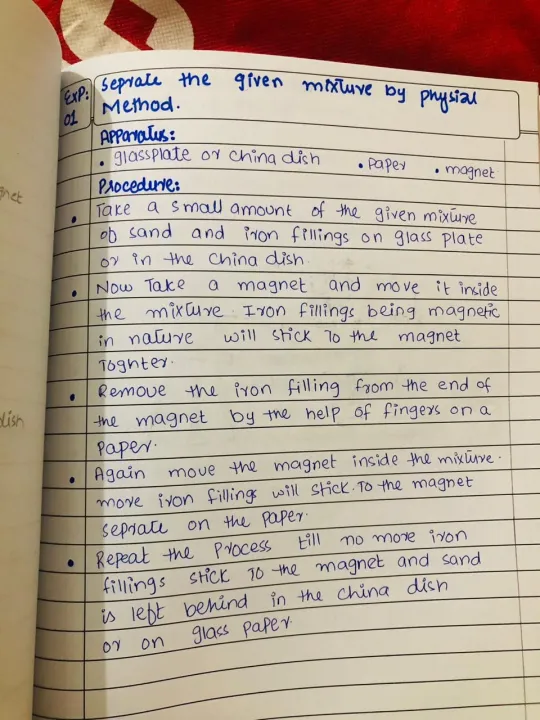 Exp: 01
Seprate the given mixture by physial
Method.
Apparatus:
• glassplate or china dish • paper • magnet
Procedure:
• Take a small amount of the given mixture
of sand and iron fillings on glass plate
or in the china dish.
• Now Take a magnet and move it inside
the mixture. Iron fillings being magnetic
in nature will stick To the magnet
Toghter.
• Remove the iron filling from the end of
the magnet by the help of fingers on a
paper.
• Again move the magnet inside the mixture.
more iron fillings will stick. To the magnet
seprate on the paper.
• Repeat the Process till no more iron
fillings stick To the magnet and sand
is left behind in the china dish
or on glass paper.